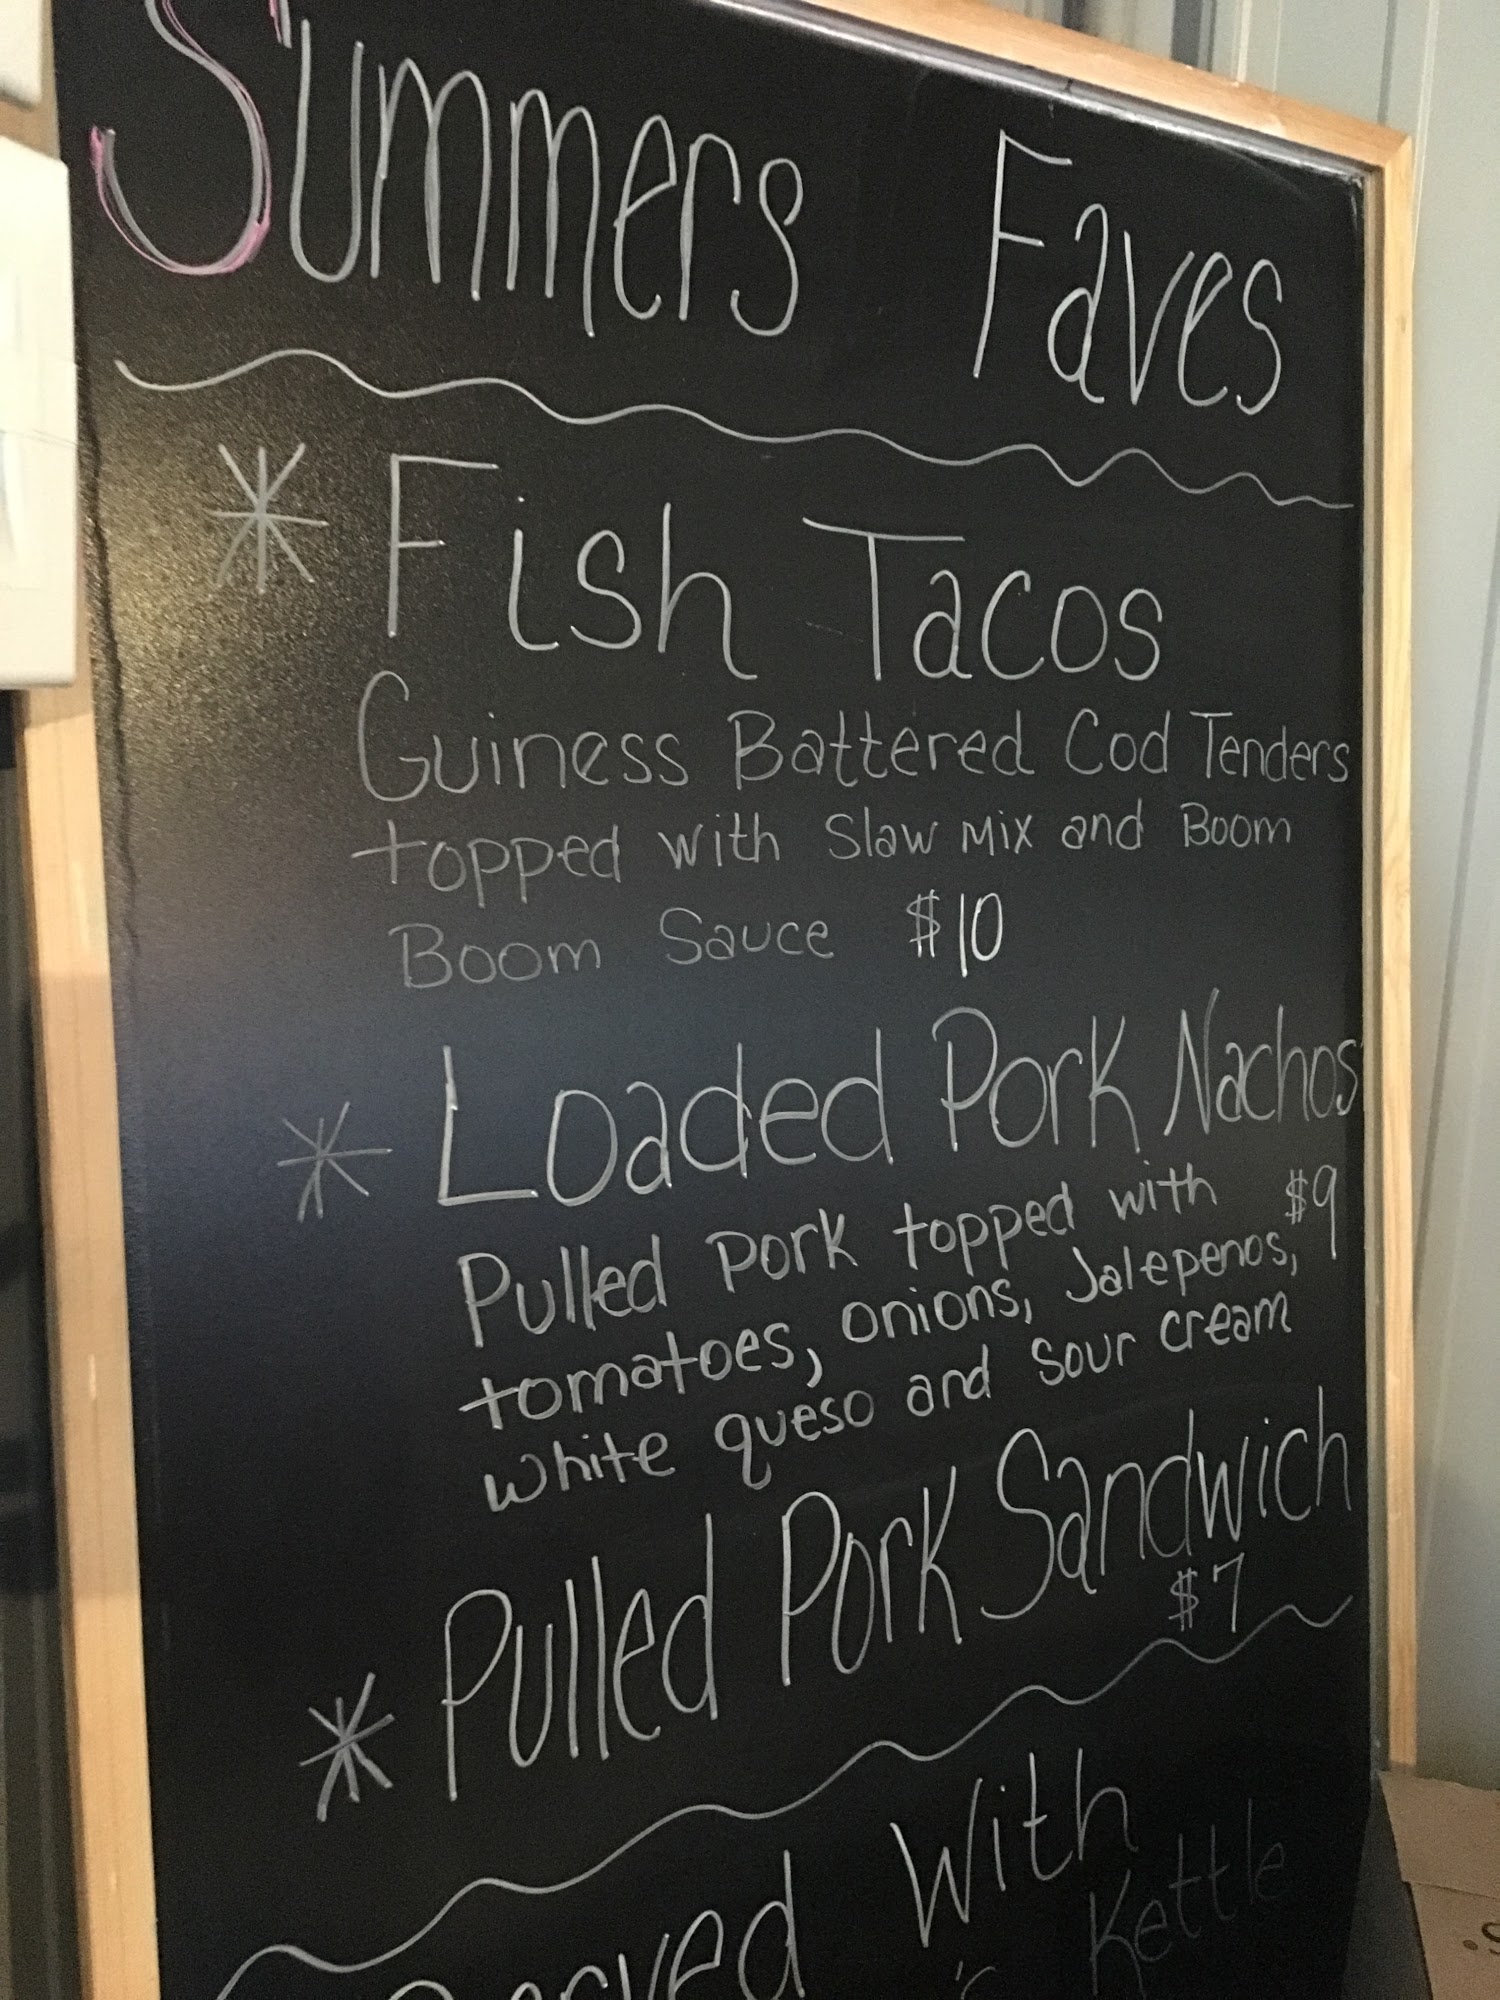 Summers Faves
* Fish Tacos
Guiness Battered Cod Tenders
topped with Slaw Mix and Boom
Boom Sauce $10
* Loaded Pork Nachos
Pulled Pork topped with $9
tomatoes, onions, Jalepenos,
white queso and sour cream
* Pulled Pork Sandwich
$7
Served With
Kettle